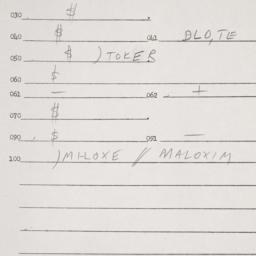 030 $
040 $ 041 BLO,TE
050 $ )TOKER
060 $
061 — 062 +
070 $
090 $ 091 —
100 )MILOXE // MALOXIM